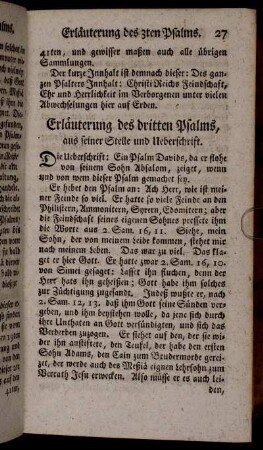 Erläuterung des 3ten Psalms. 27
41ten, und gewisser maßen auch alle übrigen
Sammlungen.
Der kurze Innhalt ist demnach dieser: Des gan-
zen Psalters Innhalt: Christi Reichs Feindschaft,
Ehr und Herrlichkeit im Verborgenen unter vielen
Abwechselungen hier auf Erden.
Erläuterung des dritten Psalms,
aus seiner Stelle und Ueberschrift.
Die Ueberschrift: Ein Psalm Davids, da er flohe
von seinem Sohn Absalom, zeiget, wenn
und von wem dieser Psalm gemachet sey.
Er hebet den Psalm an: Ach Herr, wie ist mei-
ner Feinde so viel. Er hatte so viele Feinde an den
Philistern, Ammonitern, Syrern, Edomitern; aber
die Feindschaft seines eigenen Sohnes pressete ihm
die Worte aus 2. Sam. 16, 11. Siehe, mein
Sohn, der von meinem Leibe kommen, stehet mir
nach meinem Leben. Das war zu viel. Das kla-
get er hier Gott. Er hatte zwar 2. Sam. 16, 10.
von Simei gesaget: Lasset ihn fluchen, denn der
Herr hats ihn geheißen; Gott habe ihm solches
zur Züchtigung zugesandt. Indeß wußte er, nach
2. Sam. 12, 13. daß ihm Gott seine Sünden verge-
geben, und ihm beystehen wolle, da jene sich durch
ihre Unthaten an Gott versündigten, und sich das
Verderben zuzogen. Er siehet auf den, der sie wi-
der ihn anstiftete, den Teufel, der habe den ersten
Sohn Adams, den Cain zum Brudermorde gerei-
zet, der werde auch des Meßiä eignen Lehrsohn zum
Verrath Jesu erwecken. Also müsse er es auch lei-
den,